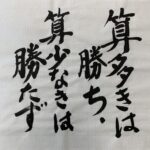 算多きは
勝ち、
算少なきは
勝たず